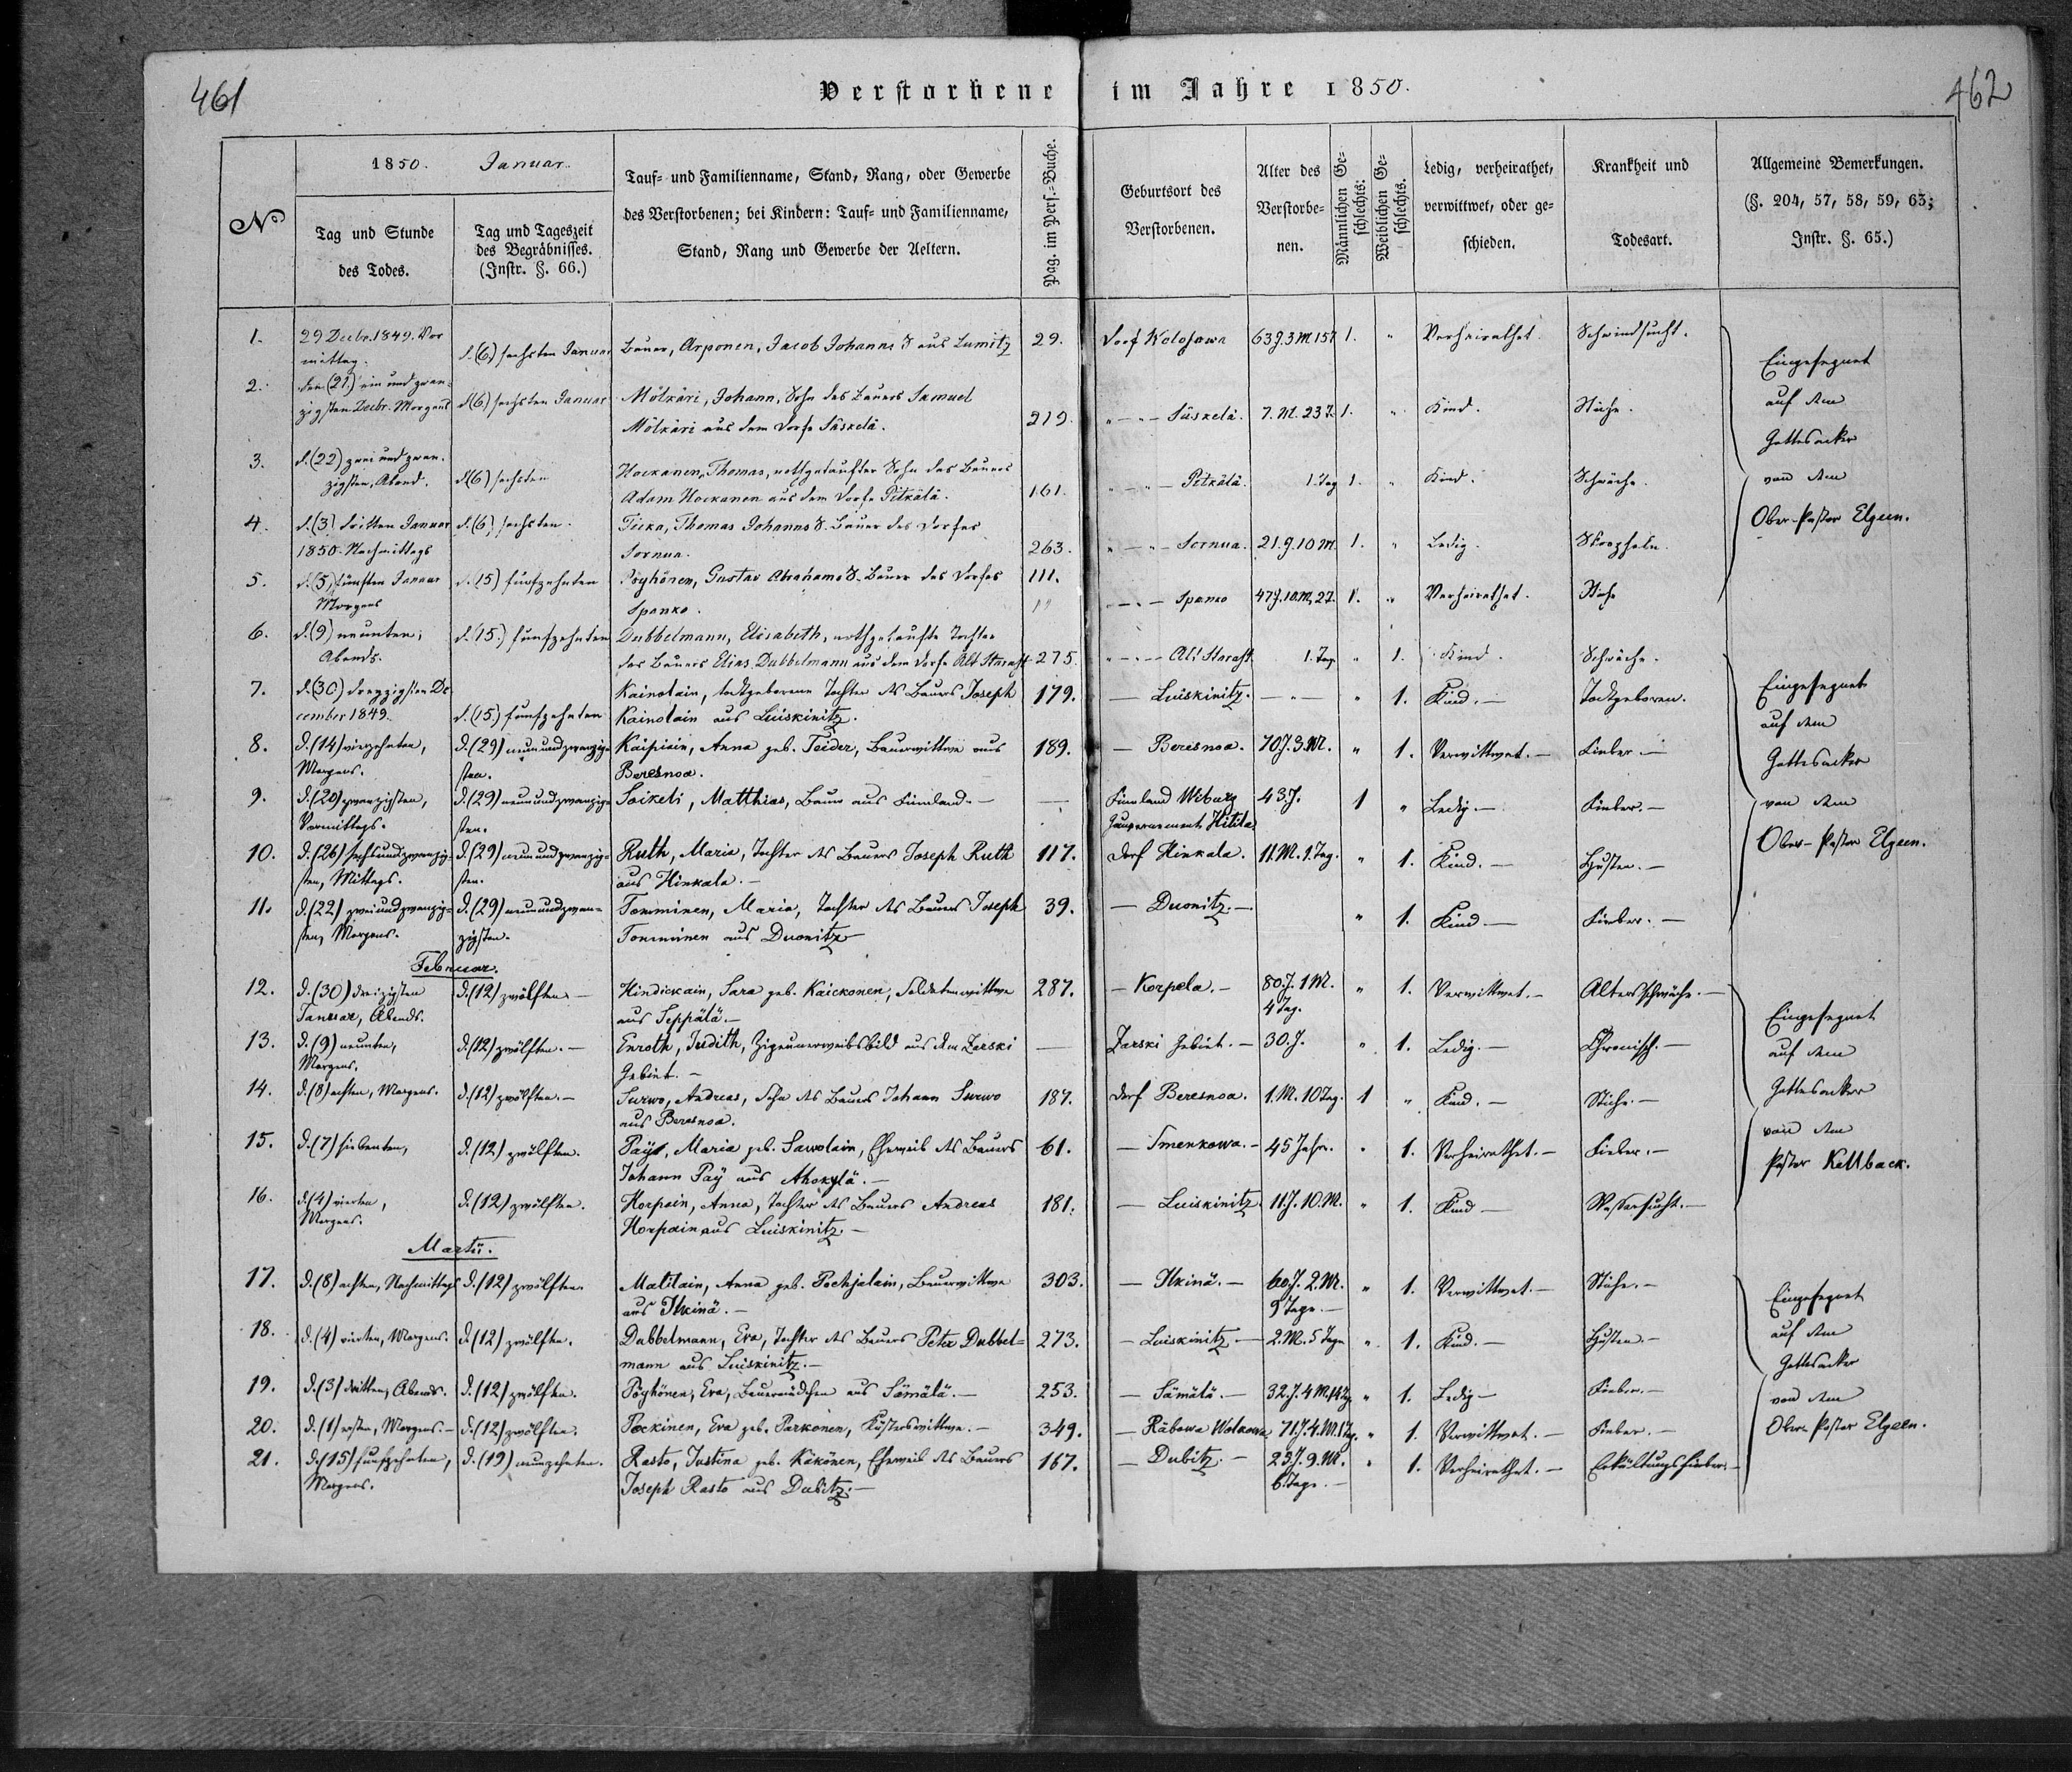 461
Verstorbene im Jahre 1850.
462
Nº
1850. Januar.
Tag und Stunde des Todes.
Tag und Tageszeit des Begräbnisses. (Instr. §. 66.)
Tauf- und Familienname, Stand, Rang, oder Gewerbe
des Verstorbenen; bei Kindern: Tauf- und Familienname,
Stand, Rang und Gewerbe der Aeltern.
Pag. im Pers.-Buche.
Geburtsort des Verstorbenen.
Alter des Verstorbe-nen.
Männlichen Ge-schlechts:
Weiblichen Ge-schlechts.
Ledig, verheirathet, verwittwet, oder ge-schieden.
Krankheit und Todesart.
Allgemeine Bemerkungen. (§. 204, 57, 58, 59, 63; Instr. §. 65.)
1. 29 Decbr. 1849. Vor mittag. d. (6) sechsten Januar Bauer, Arponen, Jacob Johanns S aus Lumitz 29. Dorf Wolosowa 63 J. 3 M 15 T 1. " Verheirathet. Schwindsucht.
2. den (21.) ein und zwan-zigsten Decbr. Morgens d (6) sechsten Januar Mölkäri, Johann, Sohn des Bauers Samuel
Mölkäri aus dem Dorfe Säskelä. 219. " — " — Säskelä. 7. M. 23 T. 1. " Kind. Stiche.
3. d. (22) zwei und zwan-zigsten, Abend. d (6) sechsten Hockanen, Thomas, nothgetaufter Sohn des Bauers
Adam Hockanen aus dem Dorfe Pitkälä. 161. " — " — Pitkälä. 1. Tag 1. " Kind. Schwäche.
4. d. (3) dritten Januar 1850. Nachmittags d. (6) sechsten. Ticka, Thomas Johanns S. Bauer des Dorfes
Sornua. 263. " — " — Sornua. 21. J. 10 M. 1. " Ledig. Skropheln.
5. d. (5) fünften Januar Morgens d. (15) fünfzehnten Pöyhönen, Gustav Abrahams S. Bauer des Dorfes
Spanko. 111. " — " — Spanko 47 J. 10. M, 2 T. 1. " Verheirathet. Stiche
Eingesegnet
auf dem
Gottesacker
von dem
Ober-Pastor Elgeen.
6. d. (9) neunten; Abends. d. (15.) fünfzehnten Dubbelmann, Elisabeth, nothgetaufte Tochter
des Bauers Elias Dubbelmann aus dem Dorfe Alt Starast 275. " — " — Alt Starast 1. Tag " 1. Kind. Schwäche.
7. d. (30) dreyzigsten De cember 1849. d. (15.) fünfzehnten Kainolain, todtgeborene Tochter des Bauers Joseph
Kainolain aus Luiskinitz. 179. — Luiskinitz. — " — " 1. Kind. — Todtgeboren.
8. d. (14) vierzehnten, Morgens. d. (29) neunundzwanzig-sten. Kaipiain, Anna geb. Teider, Bauerwittwe aus
Beresnoa. 189. — Beresnoa. 70 J. 3. M. " 1. Verwittwet. — Fieber. —
9. d. (20) zwanzigsten, Vormittags. d. (29) neunundzwanzig-sten. Soikeli, Matthias, Bauer aus Finnland. — — Finnland Wiburg Gouvernement Hitila 43. J. 1 " Ledig. — Fieber. —
10. d. (26) sechsundzwanzig-sten, Mittags. d. (29) neunundzwanzig-sten. Ruth, Maria, Tochter des Bauers Joseph Ruth
aus Hinkala. — 117. Dorf Hinkala. 11. M. 1. Tag. " 1. Kind. — Husten. —
11. d. (22) zweiundzwanzig-sten, Morgens. d. (29) neunundzwan-zigsten. Tomminen, Maria, Tochter des Bauers Joseph
Tomminen aus Duonitz 39. — Duonitz. — " 1. Kind. — Fieber. —
Eingesegnet
auf dem
Gottesacker
von dem
Ober-Pastor Elgeen.
Februar.
12. d. (30) dreizigsten Januar, Abends. d. (12) zwölften. — Hindickain, Sara geb. Kaickonen, Soldatenwittwe
aus Seppälä. — 287. — Korpela. — 80. J. 1 M. 4 Tag. " 1. Verwittwet. — Altersschwäche. —
13. d. (9) neunten, Morgens. d. (12) zwölften. — Enroth, Judith, Zigeunerweibsbild aus dem Zarski
Gebiet. — — Zarski Gebiet. — 30. J. " 1. Ledig. — Chronisch. —
14. d. (8) achten, Morgens. d. (12) zwölften. — Surwo, Andreas, Sohn des Bauers Johann Surwo
aus Beresnoa. 187. Dorf Beresnoa. 1. M. 10 Tag. 1 " Kind. — Stiche. —
15. d. (7) siebenten, d. (12) zwölften. Päy, Maria geb. Sawolain, Eheweib des Bauers
Johann Päy aus Ahokylä. — 61. — Smenkowa. — 45 Jahr. " 1. Verheirathet. — Fieber. —
16. d. (4) vierten, Morgens. d. (12) zwölften. Horpain, Anna, Tochter des Bauers Andreas
Horpain aus Luiskinitz. — 181. — Luiskinitz 11. J. 10. M. " 1. Kind — Wassersucht. —
Eingesegnet
auf dem
Gottesacker
von dem
Pastor Kellback.
Martii.
17. d. (8) achten, Nachmittags d. (12) zwölften. Malilain, Anna geb. Pochjalain, Bauerwittwe
aus Ilkinä. — 303. — Ilkinä. — 60. J. 2. M. 9 Tage. — " 1. Verwittwet. — Stiche. —
18. d. (4) vierten, Morgens. d. (12) zwölften. Dubbelmann, Eva, Tochter des Bauers Peter Dubbel-
mann aus Luiskinitz. — 273. — Luiskinitz. — 2. M. 5 Tage " 1. Kind. — Husten. —
19. d. (3) dritten, Abends. d. (12) zwölften. Pöyhönen, Eva, Bauermädchen aus Sämälä. — 253. — Sämälä. — 32. J. 4 M. 14 Tg. " 1. Ledig — Fieber. —
20. d. (1) ersten, Morgens. — d. (12) zwölften. Pockinen, Eva geb. Parkonen, Küsterswittwe. — 349. — Räbowa Wolkowa 71. J. 4. M. 1 Tg. " 1. Verwittwet. — Fieber. —
21. d. (15) fünfzehnten, Morgens. d. (19) neunzehnten. Rasto, Justina geb. Käkönen, Eheweib des Bauers
Joseph Rasto aus Dubitz. — 167. — Dubitz. — 23. J. 9. M. 6. Tage. — " 1. Verheirathet. — Erkältungsfieber. —
Eingesegnet
auf dem
Gottesacker
von dem
Ober-Pastor Elgeen.